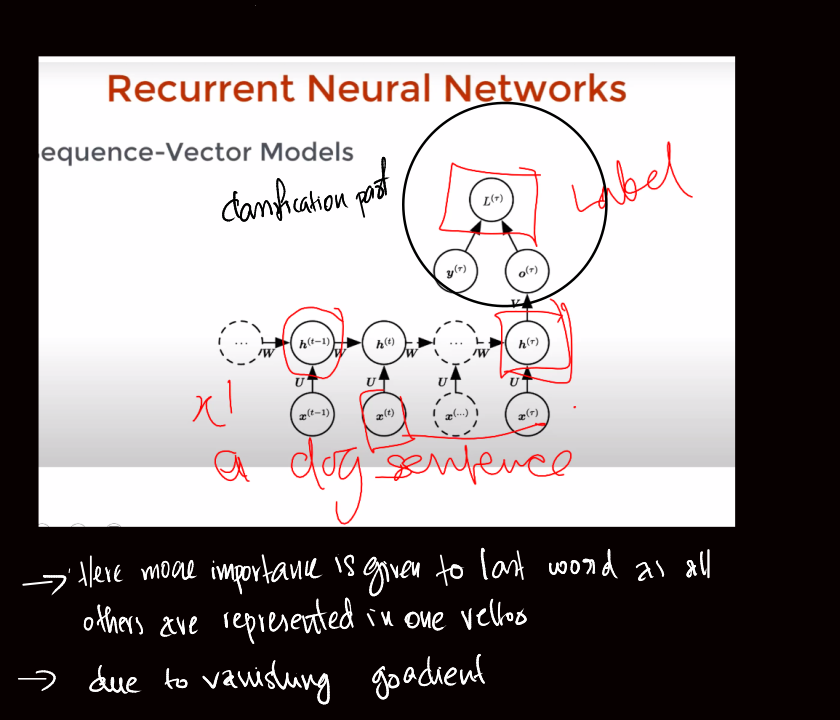 Recurrent Neural Networks
equence-Vector Models
classification part
Label
L(τ)
y(τ) o(τ)
V
... W h(t−1) W h(t) W ... W h(τ)
U U U U
x(t−1) x(t) x(...) x(τ)
x1
a dog sentence
→ Here more importance is given to last word as all
others are represented in one vector
→ due to vanishing gradient